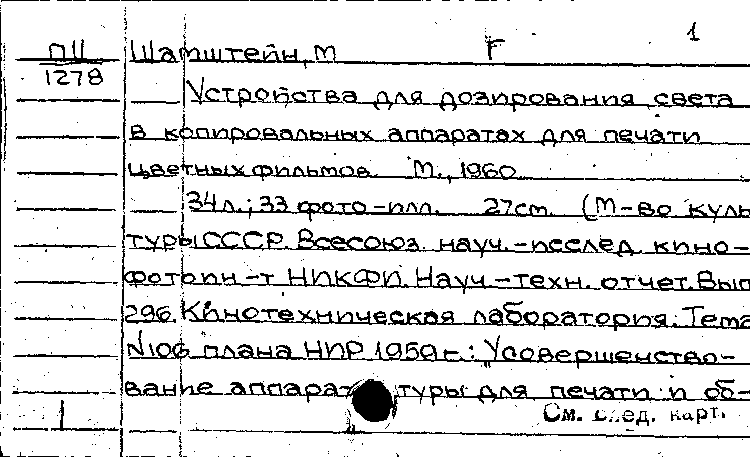 1
ПШ Шатштейн, М Г
1278
Устройства для дозирования света
в копировальных аппаратах для печати
цветных фильмов М., 1960
34л.; 33 фото-илл. 27см. (М-во куль
туры СССР. Всесоюз. науч.-исслед кино-
фотоин-т НИКФИ. Науч.-техн. отчет. Вып
296. Кинотехническая лаборатория. Тема
№106 плана НИР 1959 г.: "Усовершенство-
вание аппаратуры для печати и об-
См. след. карт.